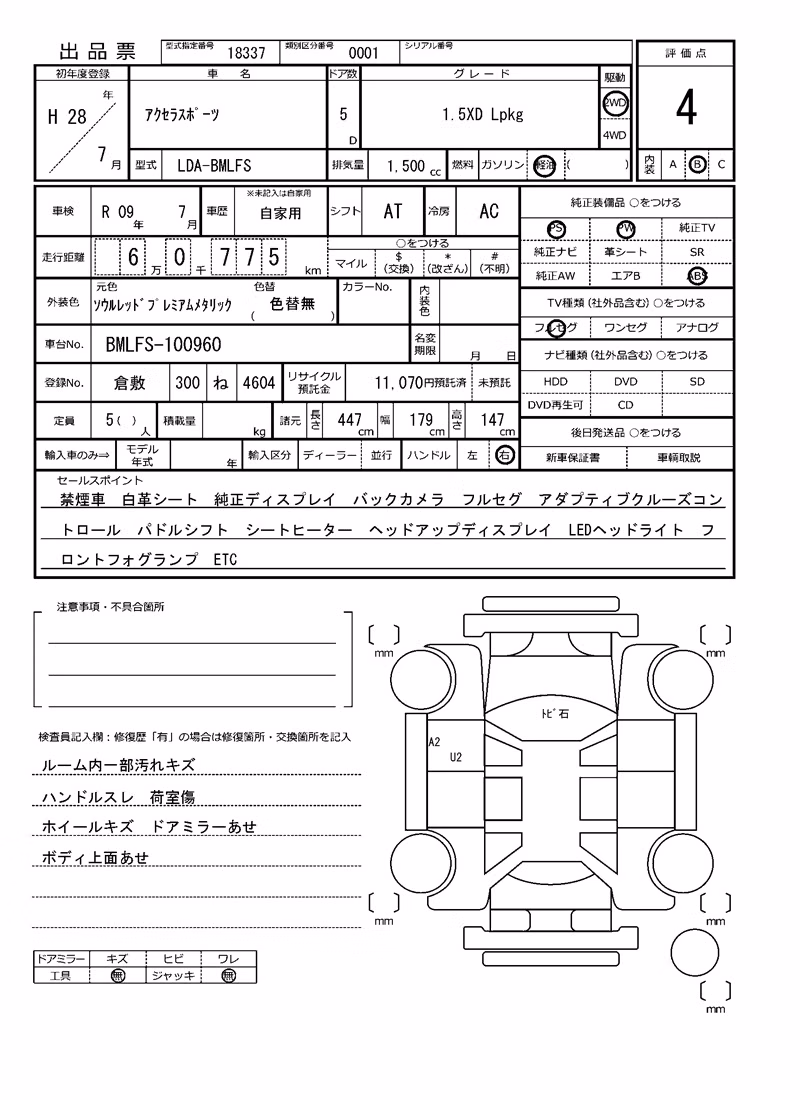 出品票 型式指定番号 18337 類別区分番号 0001 シリアル番号
評価点
4
内装 A B C
初年度登録 車名 ドア数 グレード 駆動
H 28 年 7 月 アクセラスポーツ 5 D 1.5XD Lpkg 2WD 4WD
型式 LDA-BMLFS 排気量 1,500 cc 燃料 ガソリン 軽油 ( )
車検 R 09 年 7 月 車歴 ※未記入は自家用 自家用 シフト AT 冷房 AC
走行距離 6 万 0 千 7 7 5 km ○をつける
マイル $ (交換) * (改ざん) # (不明)
外装色 元色 ソウルレッドプレミアムメタリック 色替 ( 色替無 ) カラーNo. 内装色
車台No. BMLFS-100960 名変期限 月 日
登録No. 倉敷 300 ね 4604 リサイクル預託金 11,070円預託済 未預託
定員 5( ) 人 積載量 kg 諸元 長さ 447 cm 幅 179 cm 高さ 147 cm
輸入車のみ⇒ モデル年式 年 輸入区分 ディーラー 並行 ハンドル 左 右
純正装備品 ○をつける
PS PW 純正TV
純正ナビ 革シート SR
純正AW エアB ABS
TV種類(社外品含む)○をつける
フルセグ ワンセグ アナログ
ナビ種類(社外品含む)○をつける
HDD DVD SD
DVD再生可 CD
後日発送品 ○をつける
新車保証書 車輌取説
セールスポイント
禁煙車 白革シート 純正ディスプレイ バックカメラ フルセグ アダプティブクルーズコン
トロール パドルシフト シートヒーター ヘッドアップディスプレイ LEDヘッドライト フ
ロントフォグランプ ETC
注意事項・不具合箇所
検査員記入欄:修復歴「有」の場合は修復箇所・交換箇所を記入
ルーム内一部汚れキズ
ハンドルスレ 荷室傷
ホイールキズ ドアミラーあせ
ボディ上面あせ
ドアミラー キズ ヒビ ワレ
工具 無 ジャッキ 無
mm mm
トビ石
A2
U2
mm mm
mm